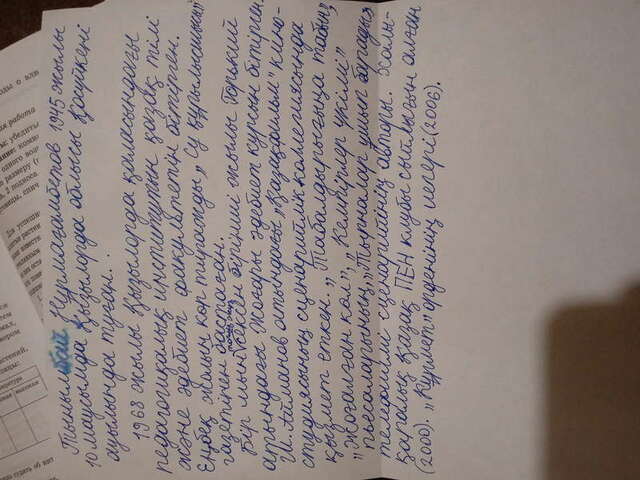 Тынымбай Нұрмағамбетов 1945 жылы
10 маусымда Қызылорда облысы Қосүйкені
ауылында туған.
1968 жылы Қызылорда қаласындағы
педагогикалық институтын қазақ тілі
және әдебиет факультетін бітірген.
Еңбек жолын көр тиражды „Су құрылысшысы"
газетінен бастаған.
Бір мың тоғыз жүз сексен бірінші жылы Горький
атындағы Жоғары әдебиет курсын бітірген.
Ш. Айманов атындағы „Қазақфильм" кино-
студиясының сценарийлік коллегиясында
қызмет еткен. „Табалдырығыңа табын",
„Жоғалған қол", „Кемпірлер үкімі"
пьесаларының, „Тырналар ұшып барады"
телефильмі сценарийінің авторы. Халы-
қаралық Қазақ ПЕН клубы сыйлығын алған
(2000). „Құрмет" орденінің иегері (2006).